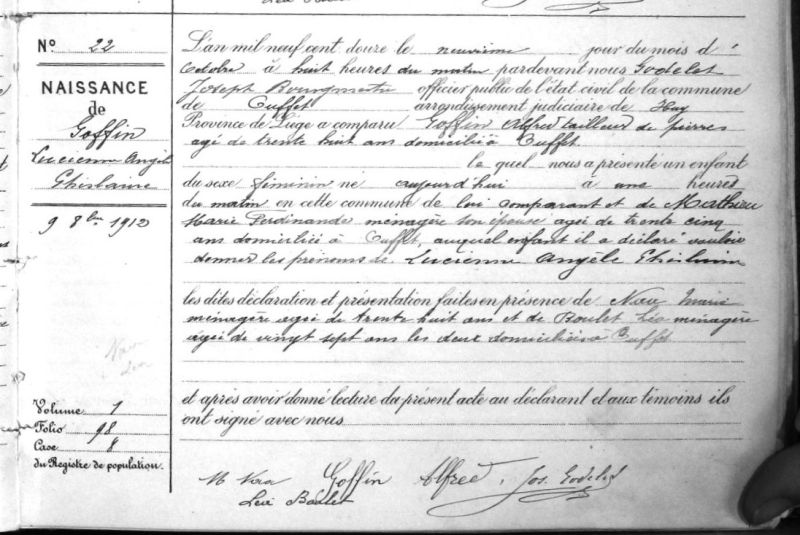 Nº 22
NAISSANCE
de
Goffin
Lucienne Angèle
Ghislaine
9 8bre 1912
Volume 1
Folio 98
Case 8
du Registre de population.
L'an mil neuf cent douze le neuvième jour du mois d'
Octobre à huit heures du matin pardevant nous Godelet
Joseph Bourgmestre officier public de l'état civil de la commune
de Ouffet arrondissement judiciaire de Huy
Province de Liège a comparu Goffin Alfred tailleur de pierres
agé de trente huit ans domicilié à Ouffet
le quel nous a présenté un enfant
du sexe féminin né aujourd'hui à une heures
du matin en cette commune de lui comparant et de Mathieu
Marie Ferdinande ménagère son épouse agée de trente cinq
ans domiciliée à Ouffet, auquel enfant il a déclaré vouloir
donner les prénoms de Lucienne Angèle Ghislaine
les dites déclaration et présentation faites en présence de Marie
ménagère agée de trente huit ans et de Boulet Léa ménagère
agée de vingt sept ans les deux domiciliées à Ouffet
et après avoir donné lecture du présent acte au déclarant et aux témoins ils
ont signé avec nous
M Goffin Alfred. Jos. Godelet
Léa Boulet